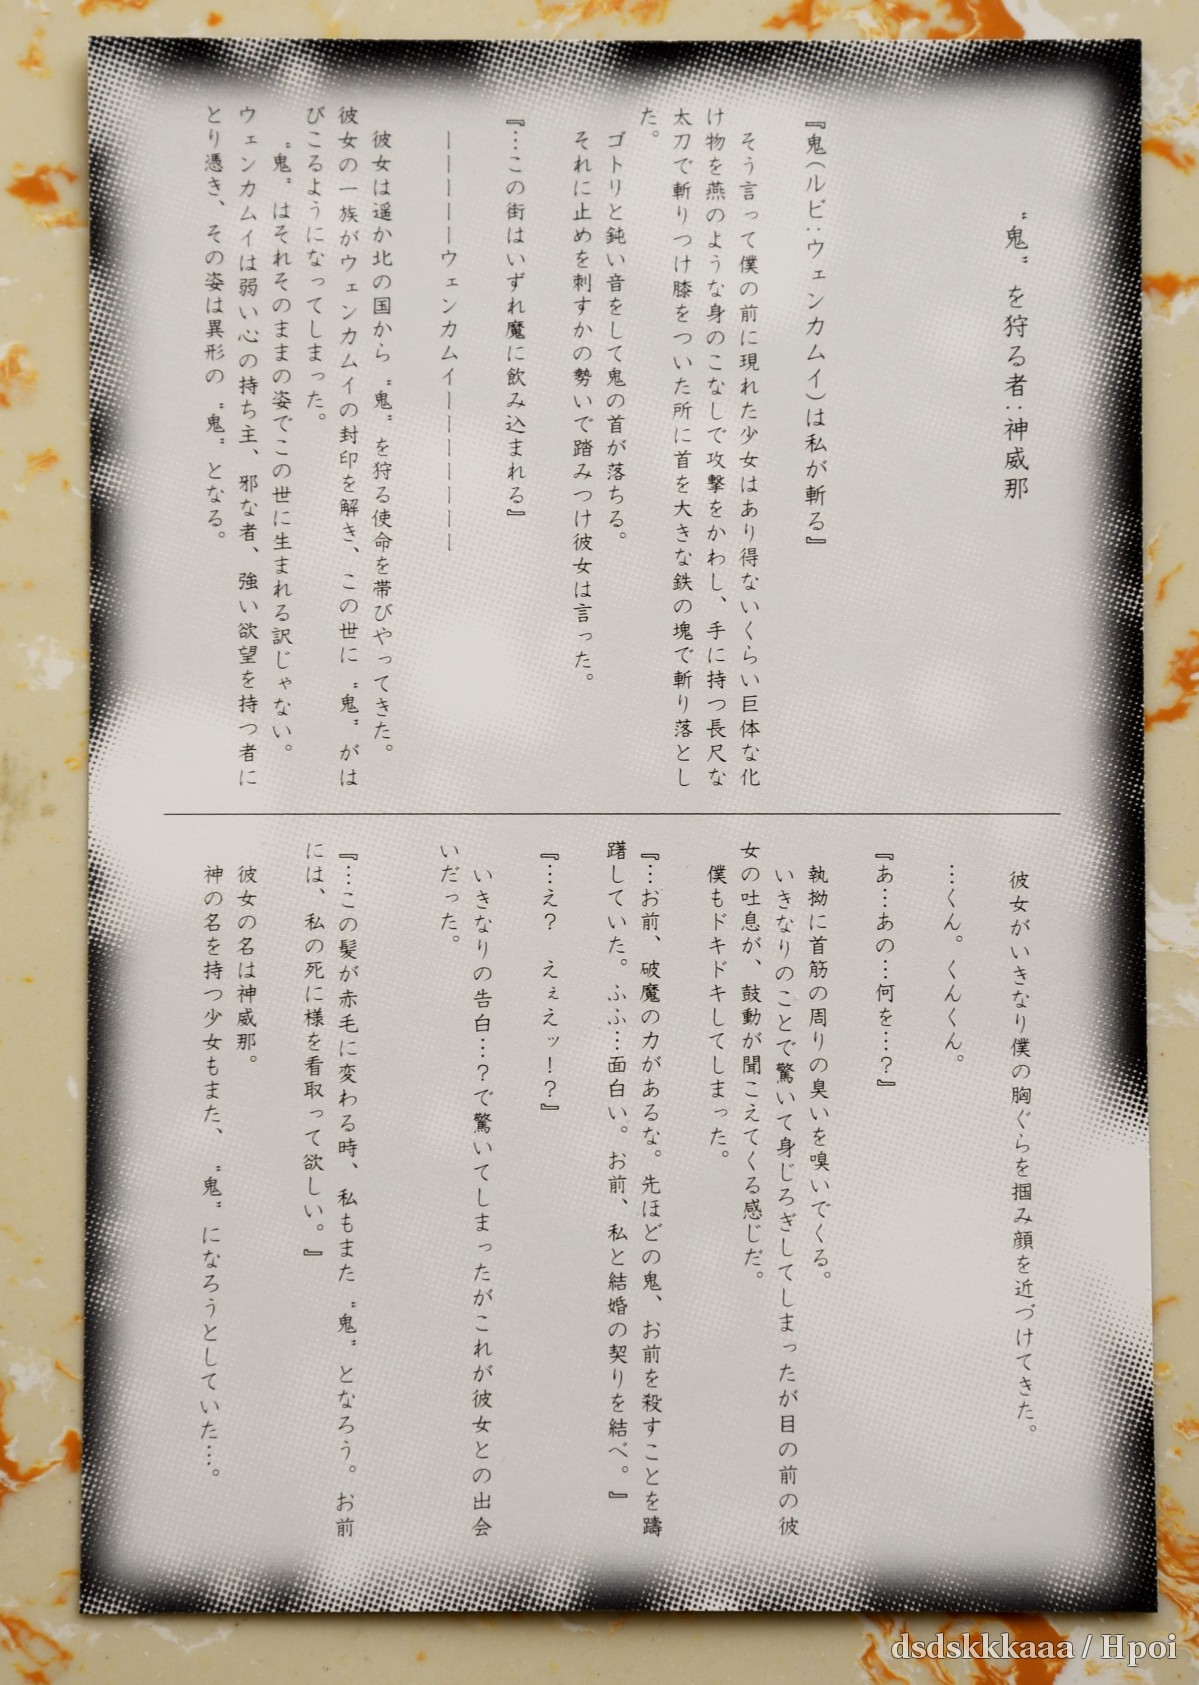 〝鬼〟を狩る者：神威那
『鬼（ルビ：ウェンカムイ）は私が斬る』
そう言って僕の前に現れた少女はあり得ないくらい巨体な化
け物を燕のような身のこなしで攻撃をかわし、手に持つ長尺な
太刀で斬りつけ膝をついた所に首を大きな鉄の塊で斬り落とし
た。
ゴトリと鈍い音をして鬼の首が落ちる。
それに止めを刺すかの勢いで踏みつけ彼女は言った。
『…この街はいずれ魔に飲み込まれる』
―――――ウェンカムイ―――――――
彼女は遥か北の国から〝鬼〟を狩る使命を帯びやってきた。
彼女の一族がウェンカムイの封印を解き、この世に〝鬼〟がは
びこるようになってしまった。
〝鬼〟はそれそのままの姿でこの世に生まれる訳じゃない。
ウェンカムイは弱い心の持ち主、邪な者、強い欲望を持つ者に
とり憑き、その姿は異形の〝鬼〟となる。
彼女がいきなり僕の胸ぐらを掴み顔を近づけてきた。
…くん。くんくん。
『あ…あの…何を…？』
執拗に首筋の周りの臭いを嗅いでくる。
いきなりのことで驚いて身じろぎしてしまったが目の前の彼
女の吐息が、鼓動が聞こえてくる感じだ。
僕もドキドキしてしまった。
『…お前、破魔の力があるな。先ほどの鬼、お前を殺すことを躊
躇していた。ふふ…面白い。お前、私と結婚の契りを結べ。』
『…え？　えぇえッ！？』
いきなりの告白…？で驚いてしまったがこれが彼女との出会
いだった。
『…この髪が赤毛に変わる時、私もまた〝鬼〟となろう。お前
には、私の死に様を看取って欲しい。』
彼女の名は神威那。
神の名を持つ少女もまた、〝鬼〟になろうとしていた…。
dsdskkkaaa / Hpoi